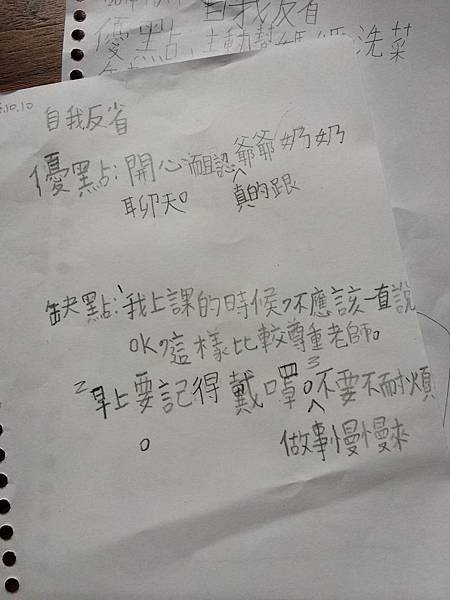 自我反省
優點:主動幫媽媽洗菜
.10.10
自我反省
優點:開心而且認爺爺奶奶
聊天。 真的跟
缺點:1我上課的時候,不應該一直說
OK,這樣比較尊重老師。
2早上要記得戴口罩。3不要不耐煩
。 做事慢慢來